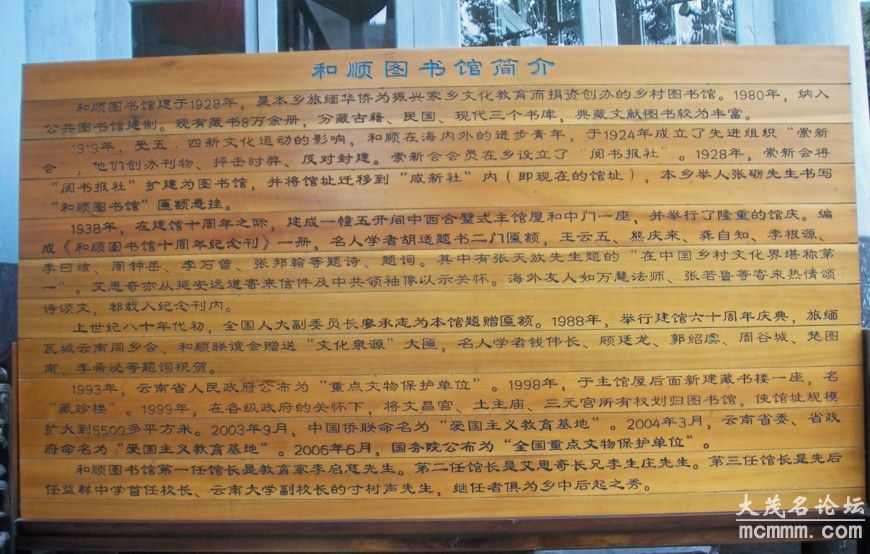 和顺图书馆简介
和顺图书馆建于1928年，是本乡旅缅华侨为振兴家乡文化教育而捐资创办的乡村图书馆。1980年，纳入
公共图书馆建制。现有藏书8万余册，分藏古籍、民国、现代三个书库，典藏文献图书较为丰富。
1919年，受五·四新文化运动的影响，和顺在海内外的进步青年，于1924年成立了先进组织“崇新
会”，他们创办刊物、抨击时弊、反对封建。崇新会会员在乡设立了“阅书报社”。1928年，崇新会将
“阅书报社”扩建为图书馆，并将馆址迁移到“咸新社”内（即现在的馆址），本乡举人张砺先生书写
“和顺图书馆”匾额悬挂。
1938年，在建馆十周年之际，建成一幢五开间中西合璧式主馆屋和中门一座，并举行了隆重的馆庆。编
成《和顺图书馆十周年纪念刊》一册，名人学者胡适题书二门匾额，王云五、熊庆来、龚自知、李根源、
李曰垓、周钟岳、李石曾、张邦翰等题诗、题词。其中有张天放先生题的“在中国乡村文化界堪称第
一”。艾思奇亦从延安远道寄来信件及中共领袖像以示关怀。海外友人如万慧法师、张若鲁等寄来热情颂
诗颂文，都载入纪念刊内。
上世纪八十年代初，全国人大副委员长廖承志为本馆题赠匾额。1988年，举行建馆六十周年庆典，旅缅
瓦城云南同乡会、和顺联谊会赠送“文化泉源”大匾，名人学者钱伟长、顾廷龙、郭绍虞、周谷城、楚图
南、李希泌等题词祝贺。
1993年，云南省人民政府公布为“重点文物保护单位”。1998年，于主馆屋后面新建藏书楼一座，名
“藏珍楼”。1999年，在各级政府的关怀下，将文昌宫、土主庙、三元宫所有权划归图书馆，使馆址规模
扩大到5500多平方米。2003年9月，中国侨联命名为“爱国主义教育基地”。2004年3月，云南省委、省政
府命名为“爱国主义教育基地”。2006年6月，国务院公布为“全国重点文物保护单位”。
和顺图书馆第一任馆长是教育家李启慈先生。第二任馆长是艾思奇长兄李生庄先生。第三任馆长是先后
任益群中学首任校长、云南大学副校长的寸树声先生，继任者俱为乡中后起之秀。
大茂名论坛
mcmmm.com